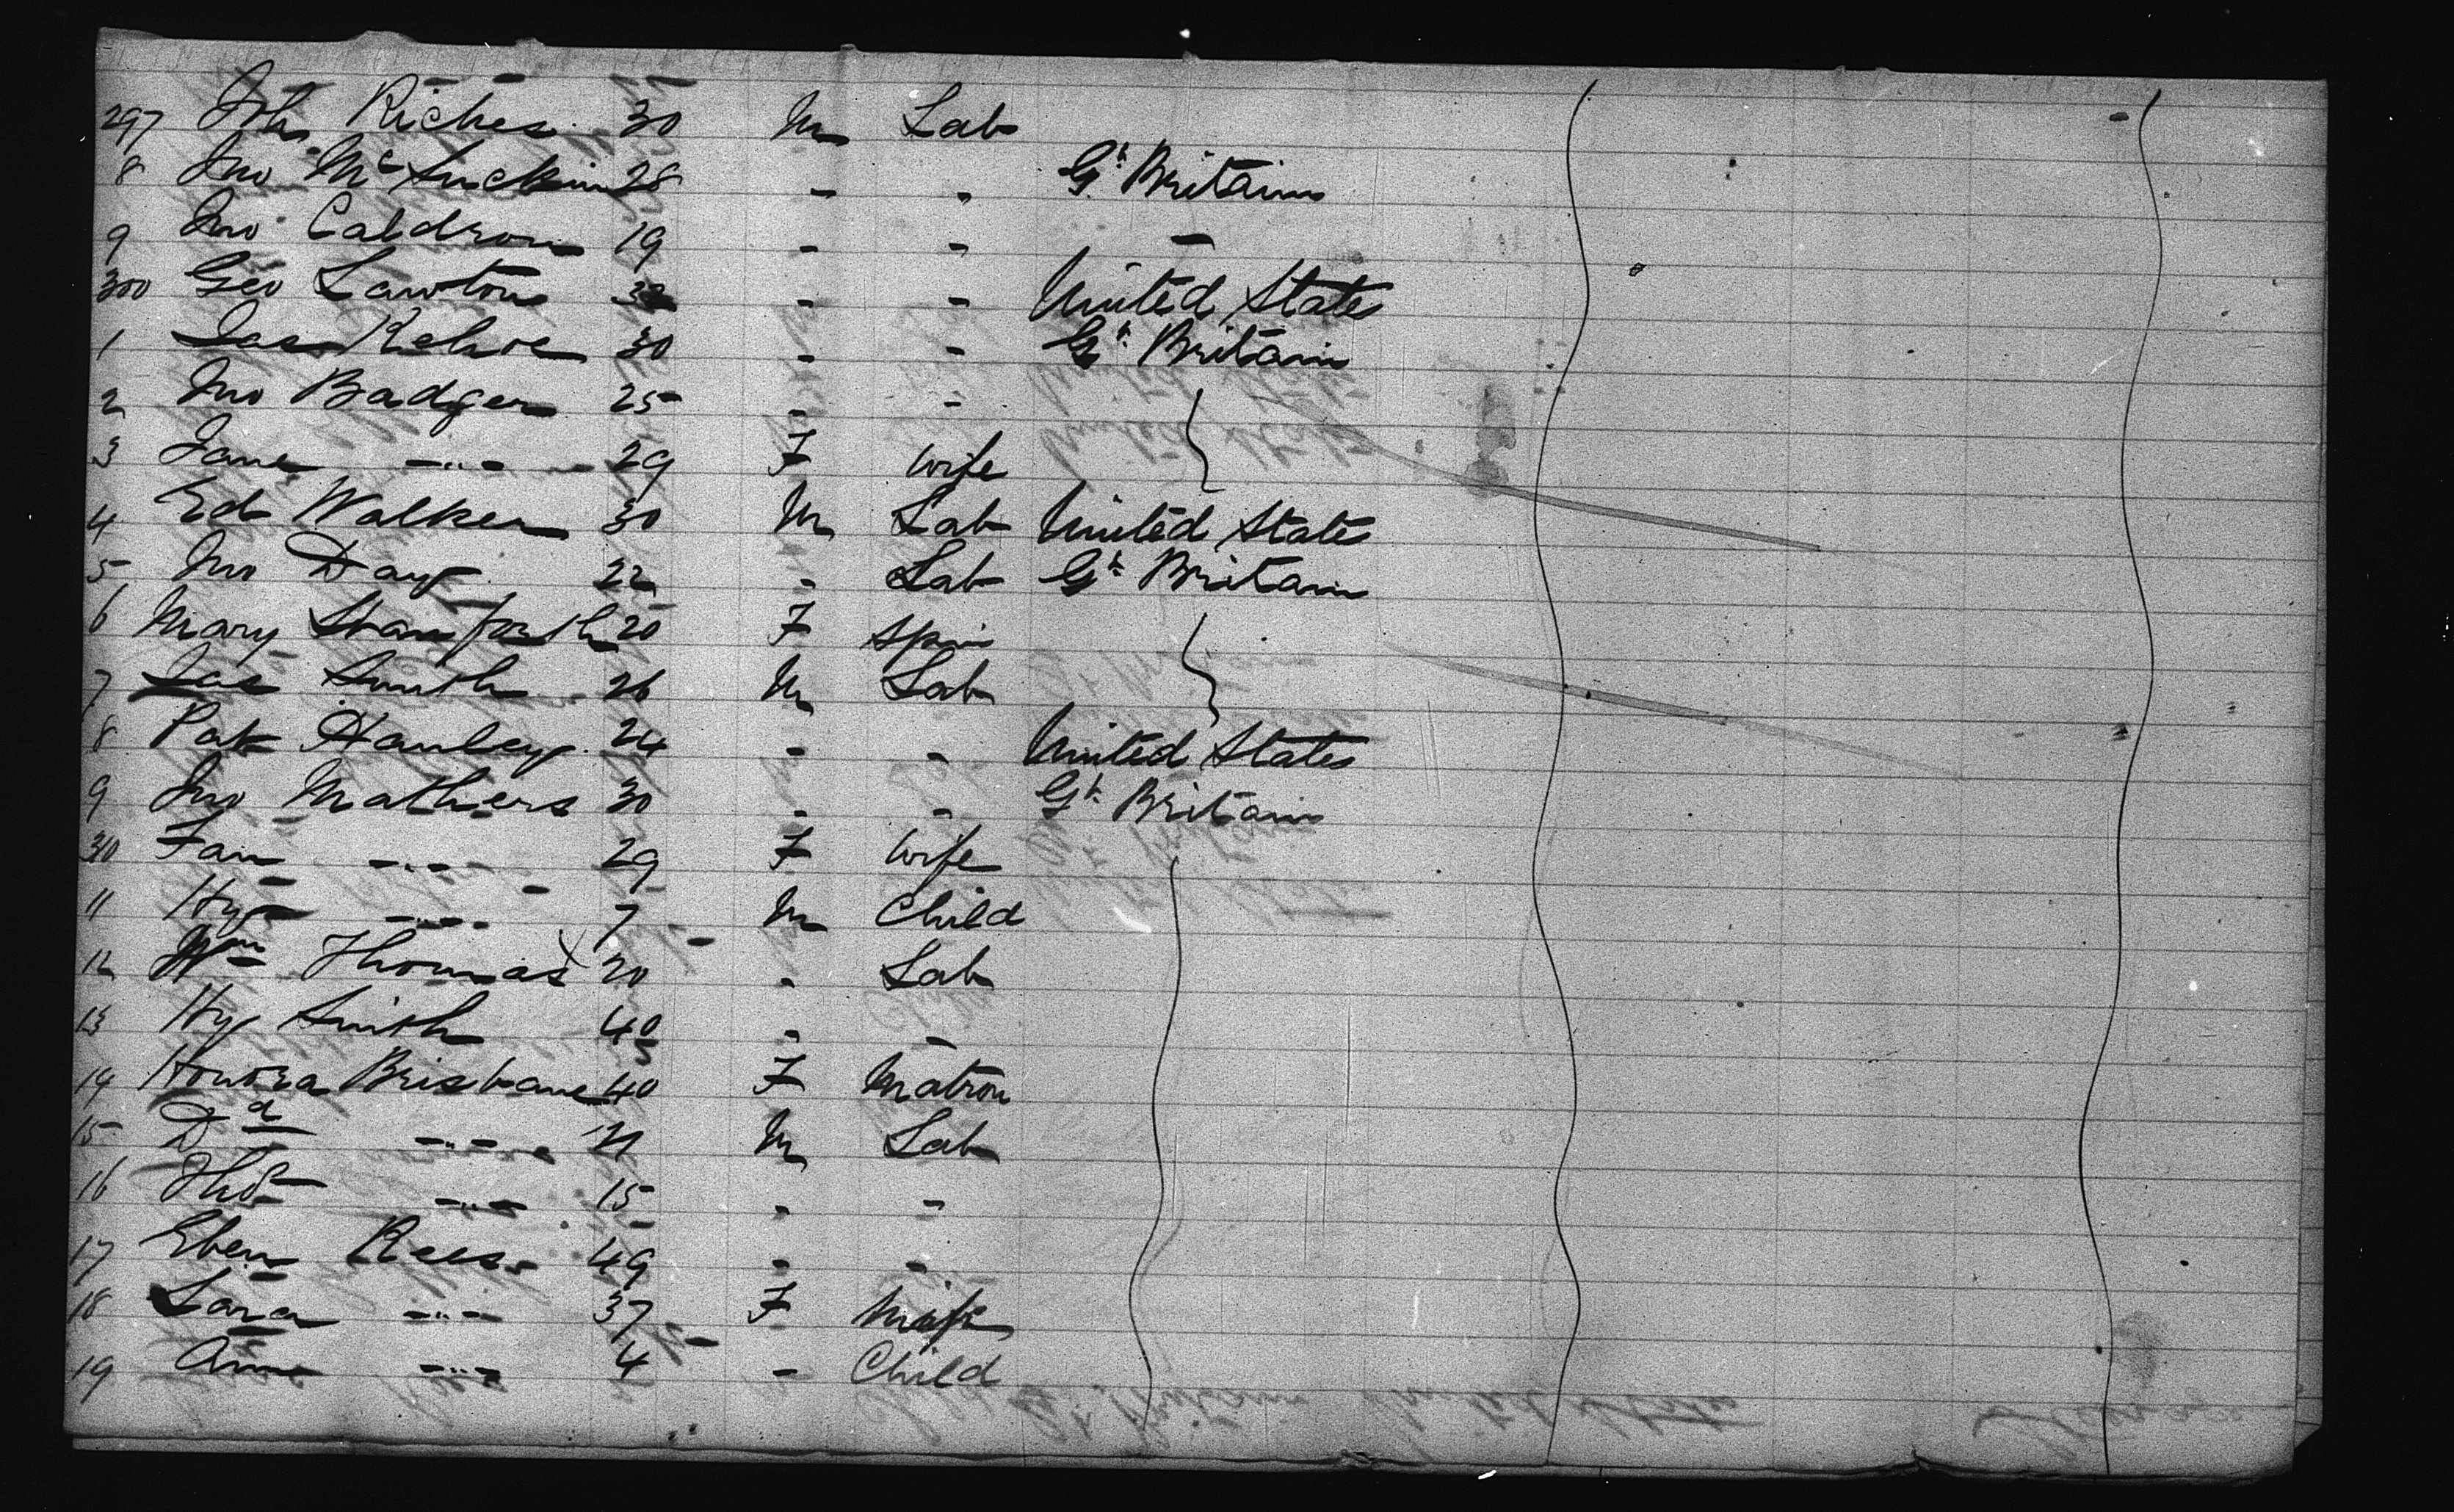 297 John Riches 30 M Lab
8 Jno Mc 28 " " Gt. Britain
9 Jno Caldron 19 " " "
300 Geo Lawton " " United States
1 Jas Kehoe 30 " " Gt. Britain
2 Jno Badger 25 " "
3 Jane -"- 29 F wife
4 Ed Walker 30 M Lab United States
5 Jno Day 22 " Lab Gt. Britain
6 Mary Staniforth 20 F Spin
7 Jas Smith 26 M Lab
8 Pat Hanley 24 " " United States
9 Jno Mathers 30 " " Gt. Britain
310 Fan -"- 29 F wife
11 Hy -"- 7 M Child
12 Wm Thomas 20 " Lab
13 Hy Smith 40 " "
14 Honora Brisbane 40 F Matron
15 Dd -"- 21 M Lab
16 Thos -"- 15 " "
17 Eben Rees 49 " "
18 Sara -"- 37 F Wife
19 Ann -"- 4 " Child